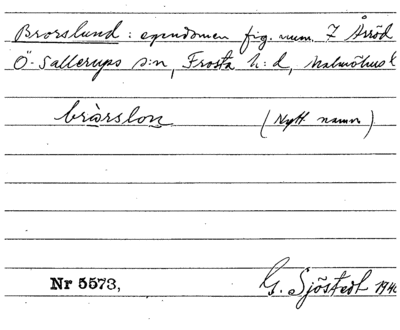 Brorslund: egendomen fig. num. 7 Årröd
Ö. Sallerups s:n, Frosta h:d, Malmöhus l
bròrslon (Nytt namn)
Nr 5573, G. Sjöstedt 1940